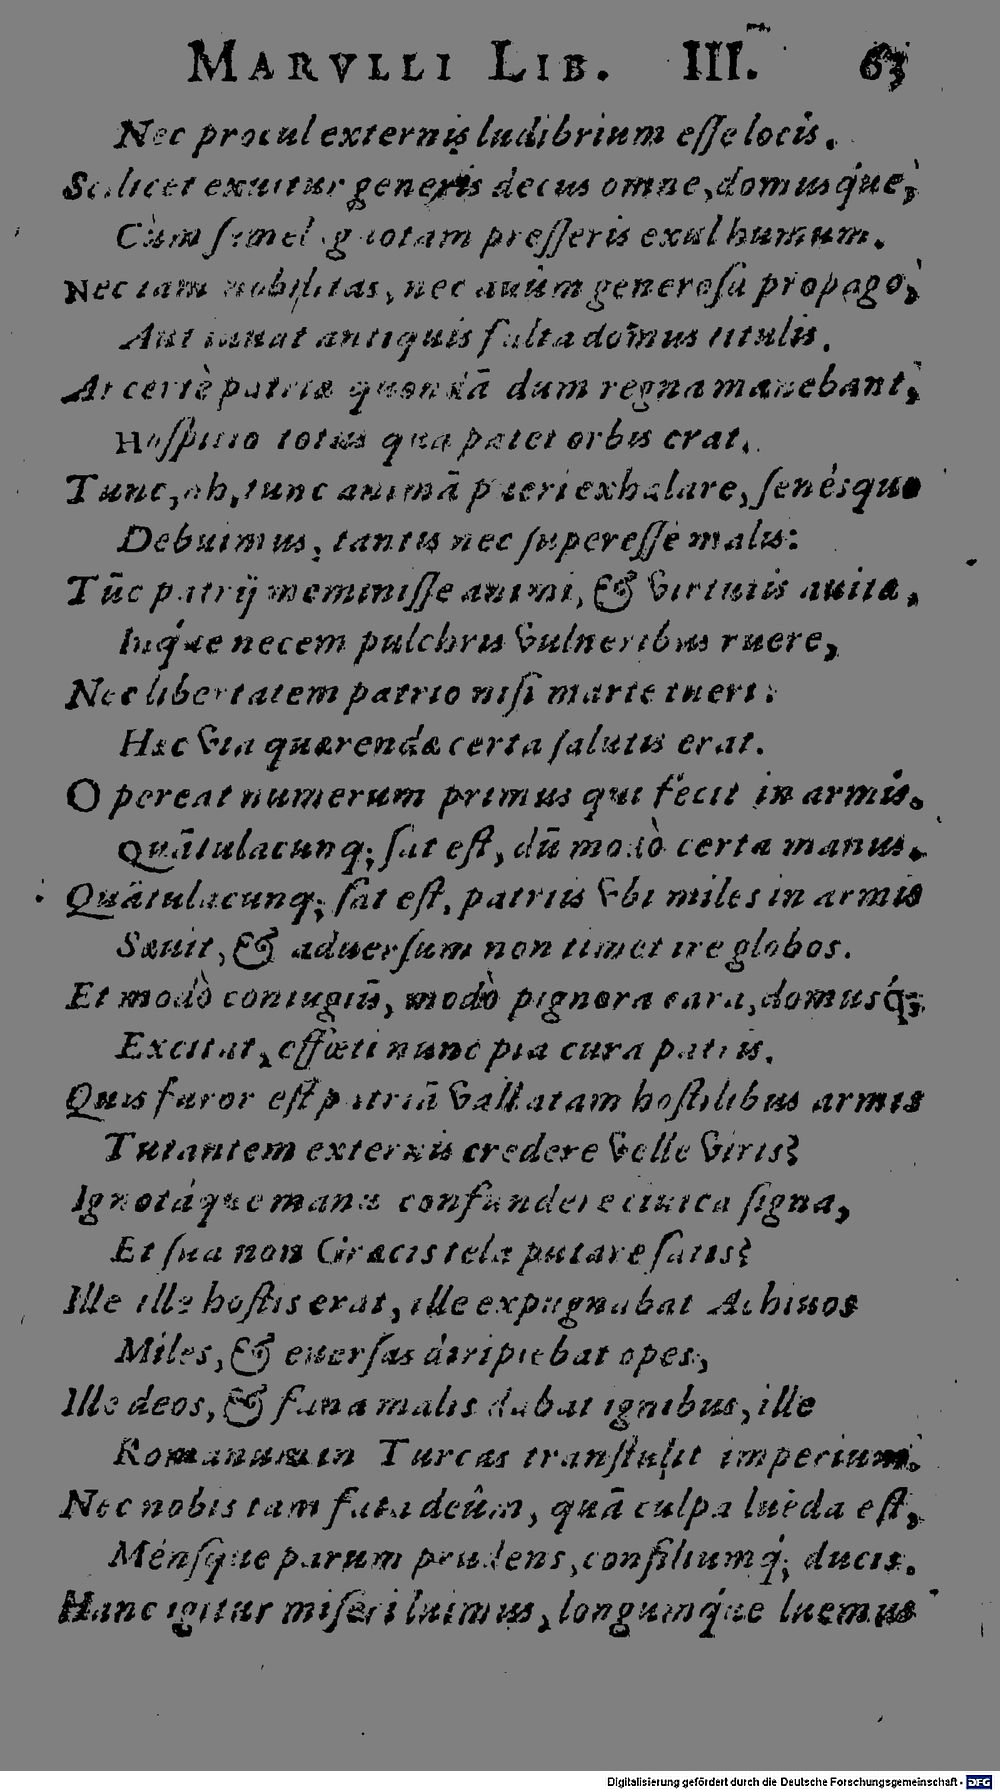 MARVLLI LIB. III. 63
Nec procul externis ludibrium eſſe locis.
Scilicet exuitur generis decus omne, domusq́ue,
Cùm ſemel ignotam preſſeris exul humum.
Nec iam nobilitas, nec auûm generoſa propago,
Aut iuuat antiquis fulta domus titulis.
At certè patriæ quondā dum regna manebant,
Hoſpitio totus qua patet orbis erat.
Tunc, ah, tunc animā pueri exhalare, ſenésque
Debuimus, tantis nec ſupereſſe malis:
Tūc patrij meminiſſe animi, & virtutis auita,
Inq́ue necem pulchris vulneribus ruere,
Nec libertatem patrio niſi marte tueri:
Hæc via quærendæ certa ſalutis erat.
O pereat numerum primus qui fecit in armis.
Quātulacunq; ſat eſt, dū modò certa manus.
Quātulacunq; ſat eſt, patriis vbi miles in armis
Sæuit, & aduerſum non timet ire globos.
Et modò coniugiū, modò pignora cara, domusq́;
Excitat, effœti nunc pia cura patris.
Quis furor eſt patriā vallatam hoſtilibus armis
Tutantem externis credere velle viris?
Ignotáque manu confundere ciuica ſigna,
Et ſua non Græcis tela putare ſatis?
Ille ille hoſtis erat, ille expugnabat Achiuos
Miles, & euerſas diripiebat opes,
Ille deos, & fana malis dabat ignibus, ille
Romanum in Turcas tranſtulit imperium.
Nec nobis tam fata deûm, quā culpa luēda eſt,
Ménſque parum prudens, conſiliumq́; ducis.
Hanc igitur miſeri luimus, longumq́ue luemus
Digitalisierung gefördert durch die Deutsche Forschungsgemeinschaft - DFG